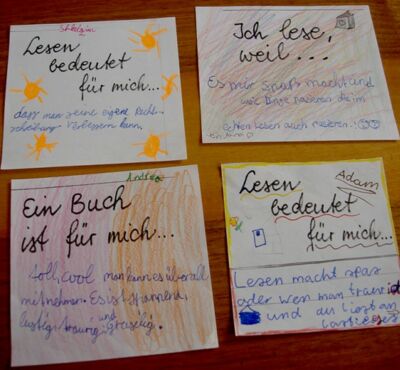 Lesen
bedeutet
für mich...
dass man seine eigene Recht-
schreibung verbessern kann.
Ich lese,
weil...
Es mir spaß macht und
wie Dinge pasieren die im
echten Leben auch pasieren.
Andrea
Ein Buch
ist für mich...
toll, cool man kann es überall
mitnehmen. Es ist spannend,
lustig, traurig und gruselig.
Adam
Lesen
bedeutet
für mich...
Lesen macht spas
oder wen man traurich
und du liest